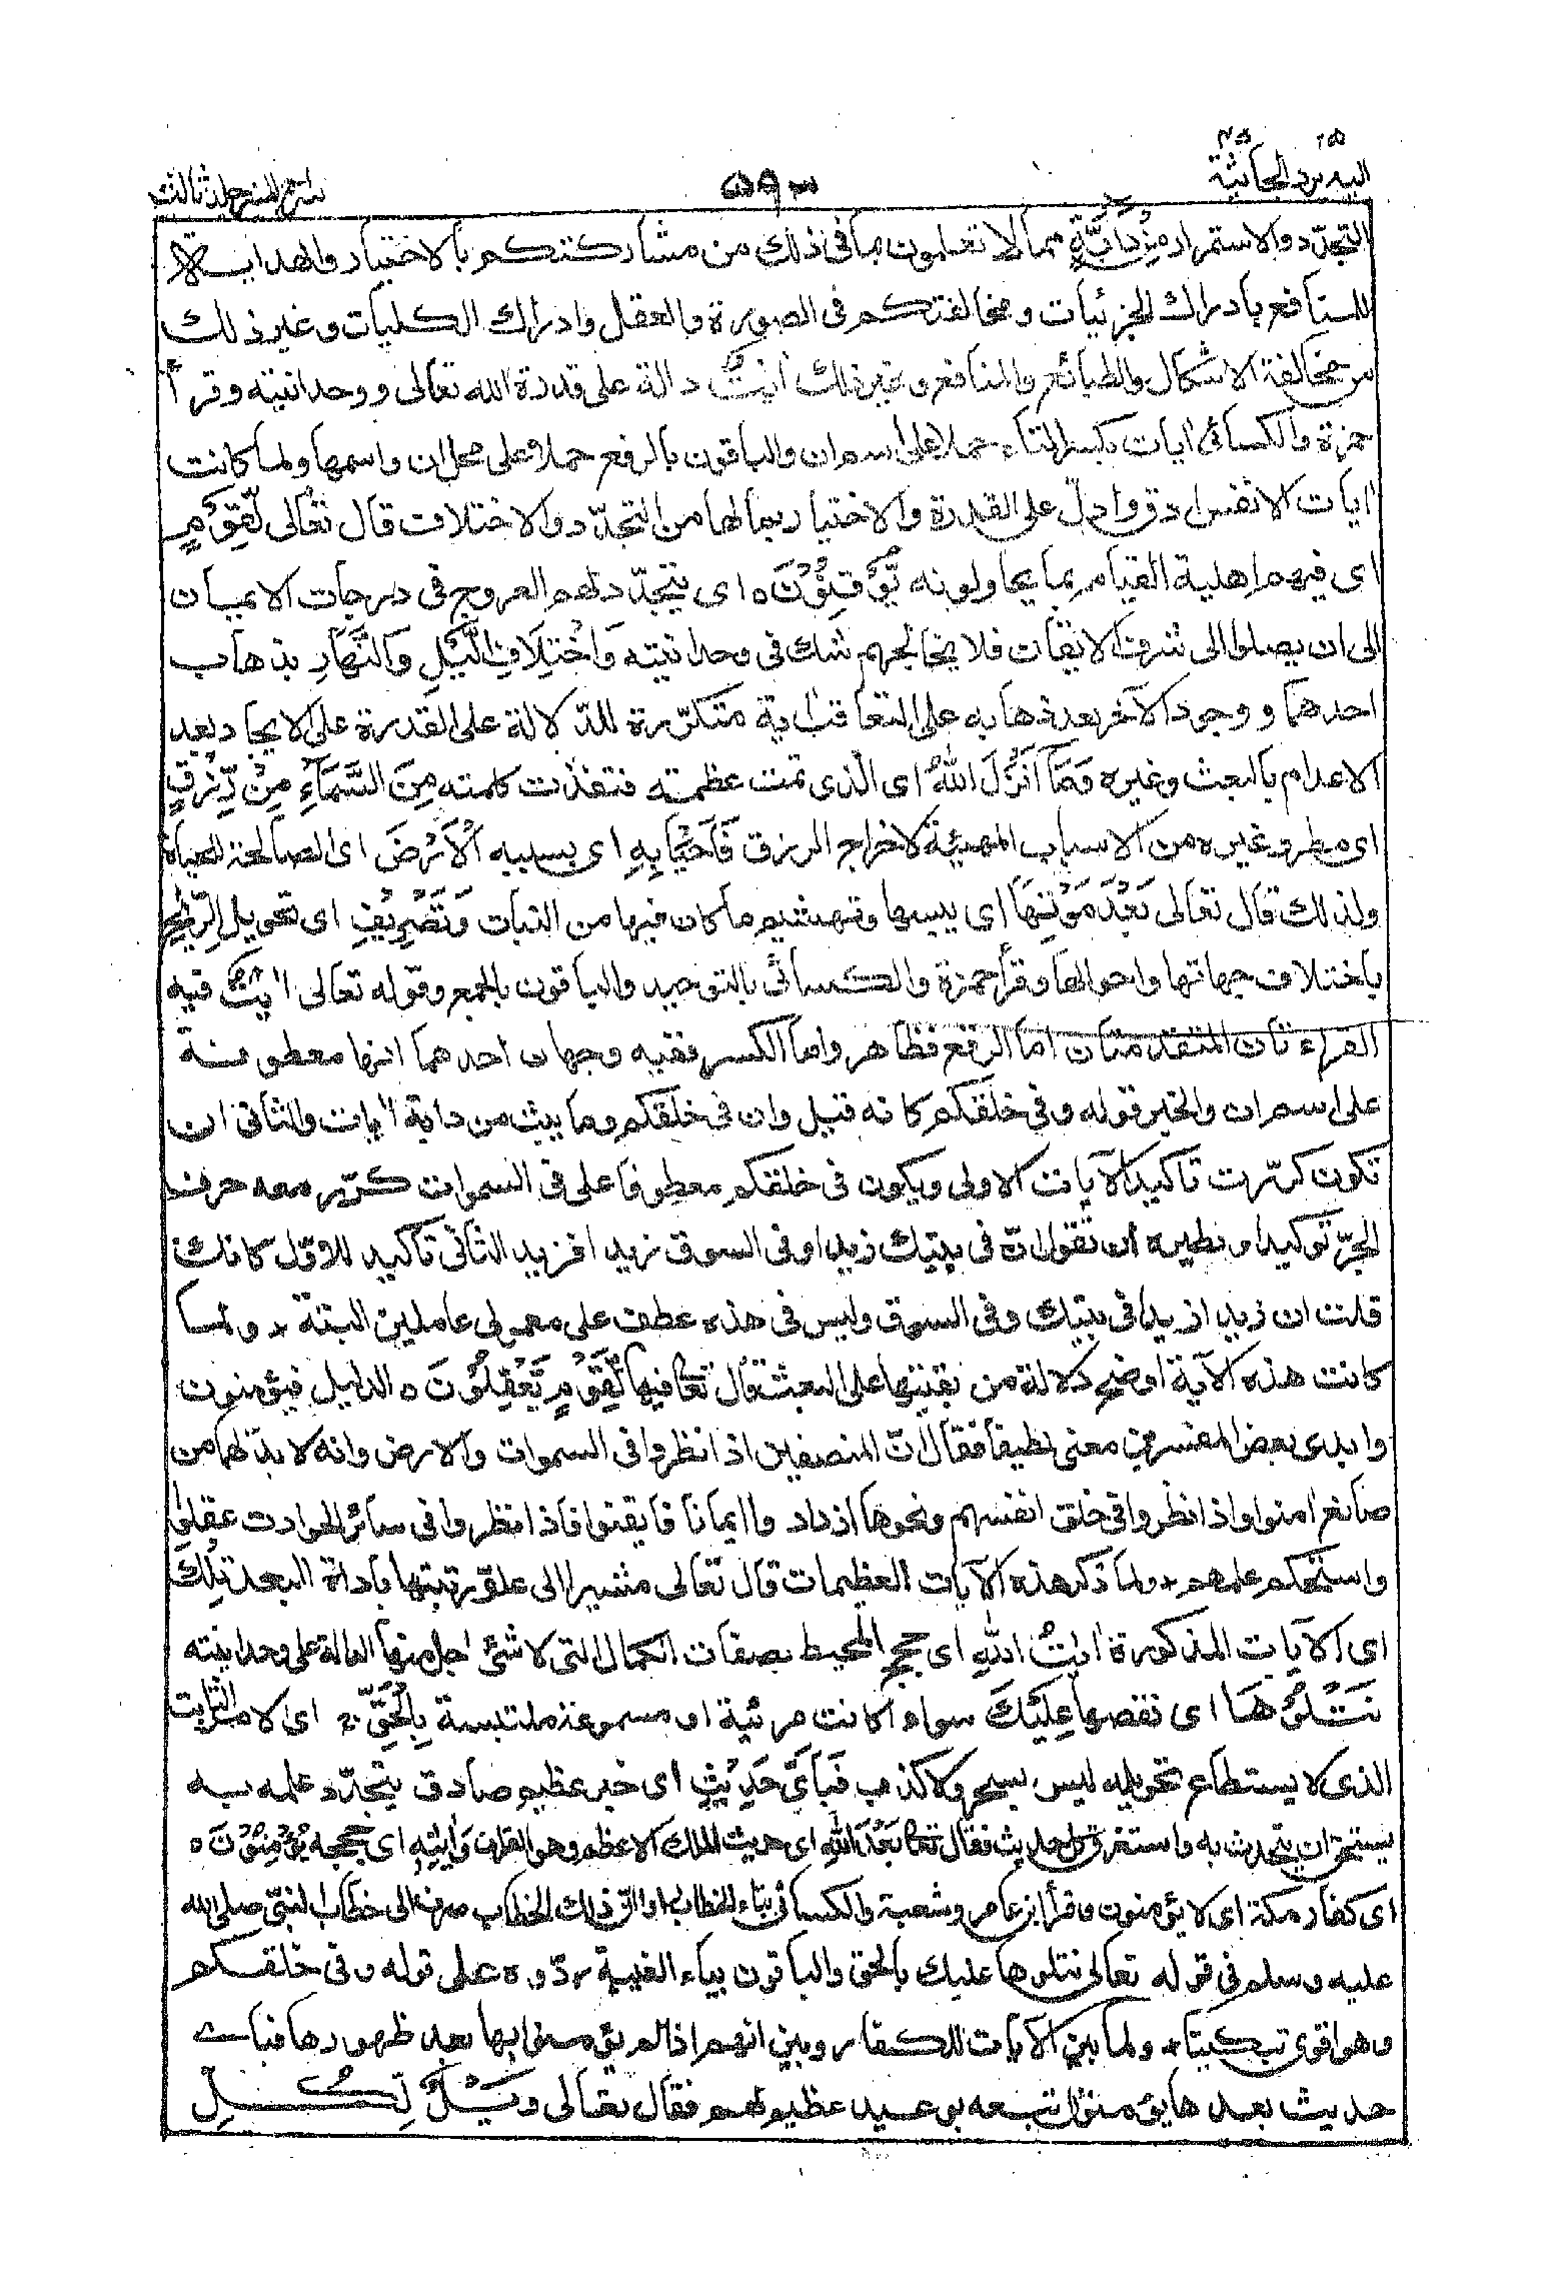 اليه يرد الجاثية
۵۹۳
سراج المنير جلد ثالث
التجدّد والاستمرار مِنْ دَابَّةٍ مما لا تعلمون بما فى ذلك من مشاركتكم بالاختيار والهداية
للمنافع بادراك الجزئيات ومخالفتكم فى الصورة والعقل وادراك الكليات وغير ذلك
من مخالفة الاشكال والطبائع والمنافع وغير ذلك اٰيٰتٌ دالة على قدرة الله تعالى ووحدانيته وقرأ
حمزة والكسائى ايات بكسر التاء حملا على اسم ان والباقون بالرفع حملا على محل ان واسمها ولما كانت
اٰيات الانفس ادق وادلّ على القدرة والاختيار بما لها من التجدّد والاختلاف قال تعالى لِّقَوْمٍ
اى فيهم اهلية القيام بما يحاولونه يُّوْقِنُوْنَ ه اى يتجدّد لهم العروج فى درجات الايمان
الى ان يصلوا الى شرف الايقان فلا يخالجهم شك فى وحدانيته وَاخْتِلَافِ الَّيْلِ وَالنَّهَارِ بذهاب
احدهما ووجود الآخر بعد ذهابه على التعاقب اية متكرّرة للدّلالة على القدرة على الايجاد بعد
الاعدام بالبعث وغيره وَمَا اَنْزَلَ اللهُ اى الّذى تمت عظمته فنفذت كلمته مِنَ السَّمَاءِ مِنْ رِّزْقٍ
اى مطر وغيره من الاسباب المهيئة لاخراج الرزق فَاَحْيَا بِهِ اى بسببه الْاَرْضَ اى الصالحة للحياة
ولذلك قال تعالى بَعْدَ مَوْتِهَا اى يبسها وتهشيم ما كان فيها من النبات وَتَصْرِيْفِ اى تحويل الرِّيٰحِ
باختلاف جهاتها واحوالها وقرأ حمزة والكسائى بالتوحيد والباقون بالجمع وقوله تعالى اٰيٰتٌ فيه
القراءتان المتقدمتان اما الرفع فظاهر واما الكسر ففيه وجهان احدهما انها معطوفة
على اسم ان والخبر قوله وفى خلقكم كانه قيل وان فى خلقكم وما يبث من دابة اٰيات والثانى ان
تكون كرّرت تاكيدا لآيات الاولى ويكون فى خلقكم معطوفا على فى السموات كرّر معه حرف
الجرّ توكيدا ونظيره ان تقول انّ فى بيتك زيدا وفى السوق زيدا فزيد الثانى تأكيد للاوّل كانك
قلت ان زيدا زيدا فى بيتك وفى السوق وليس فى هذه عطف على معمولى عاملين البتة ولما
كانت هذه الآية اوضح دلالة من بقيتها على البعث قال تعالى فيها لِّقَوْمٍ يَّعْقِلُوْنَ ه الدليل فيؤمنون
وابدى بعض المفسرين معنى لطيفا فقال انّ المنصفين اذا نظروا فى السموات والارض وانه لا بدّ لهما من
صانع اٰمنوا واذا نظروا فى خلق انفسهم ونحوها ازدادوا ايمانا فايقنوا فاذا نظروا فى سائر الحوادث عقلوا
واستحكم علمهم ولما ذكر هذه الآيات العظيمات قال تعالى مشيرا الى علوّ رتبتها باداة البعد تِلْكَ
اى الآيات المذكورة اٰيٰتُ اللهِ اى حجج المحيط بصفات الكمال التى لا شئ اجل منها الدالة على وحدانيته
نَتْلُوْهَا اى نقصها عَلَيْكَ سواء كانت مرئية او مسموعة ملتبسة بِالْحَقِّ ج اى الامر الثابت
الذى لا يستطاع تحويله ليس بسحر ولا كذب فَبِاَىِّ حَدِيْثٍ اى خبر عظيم صادق يتجدّد علمه به
يستحق ان يتحدث به واستغرق كل حديث فقال تعالى بَعْدَ اللهِ اى حديث الملك الاعظم وهو القراٰن وَاٰيٰتِهِ اى حججه يُؤْمِنُوْنَ ه
اى كفار مكة اى لا يؤمنون وقرأ ابن عامر وشعبة والكسائى بتاء الخطاب ذلك الخطاب صرفه الى خطاب النبى صلى الله
عليه وسلم فى قوله تعالى نتلوها عليك بالحق والباقون بياء الغيبة ردّوه على قوله وفى خلقكم
وهو اقوى تبكيتا ولما بين الآيات للكفار وبين انهم اذا لم يؤمنوا بها بعد ظهورها فباى
حديث بعدها يؤمنون اتبعه بوعيد عظيم لهم فقال تعالى وَيْلٌ لِّكُلِّ